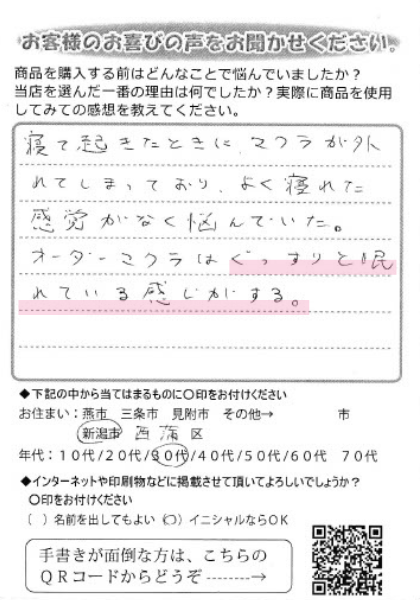 お客様のお喜びの声をお聞かせください。
商品を購入する前はどんなことで悩んでいましたか？
当店を選んだ一番の理由は何でしたか？実際に商品を使用
してみての感想を教えてください。
寝て起きたときに、マクラが外
れてしまっており、よく寝れた
感覚がなく悩んでいた。
オーダーマクラはぐっすりと眠
れている感じがする。
◆下記の中から当てはまるものに〇印をお付けください
お住まい：燕市 三条市 見附市 その他→ 市
新潟市 西蒲 区
年代：１０代/２０代/３０代/４０代/５０代/６０代 ７０代
◆インターネットや印刷物などに掲載させて頂いてよろしいでしょうか？
〇印をお付けください
（ ）名前を出してもよい（〇）イニシャルならＯＫ
手書きが面倒な方は、こちらの
ＱＲコードからどうぞ --------→